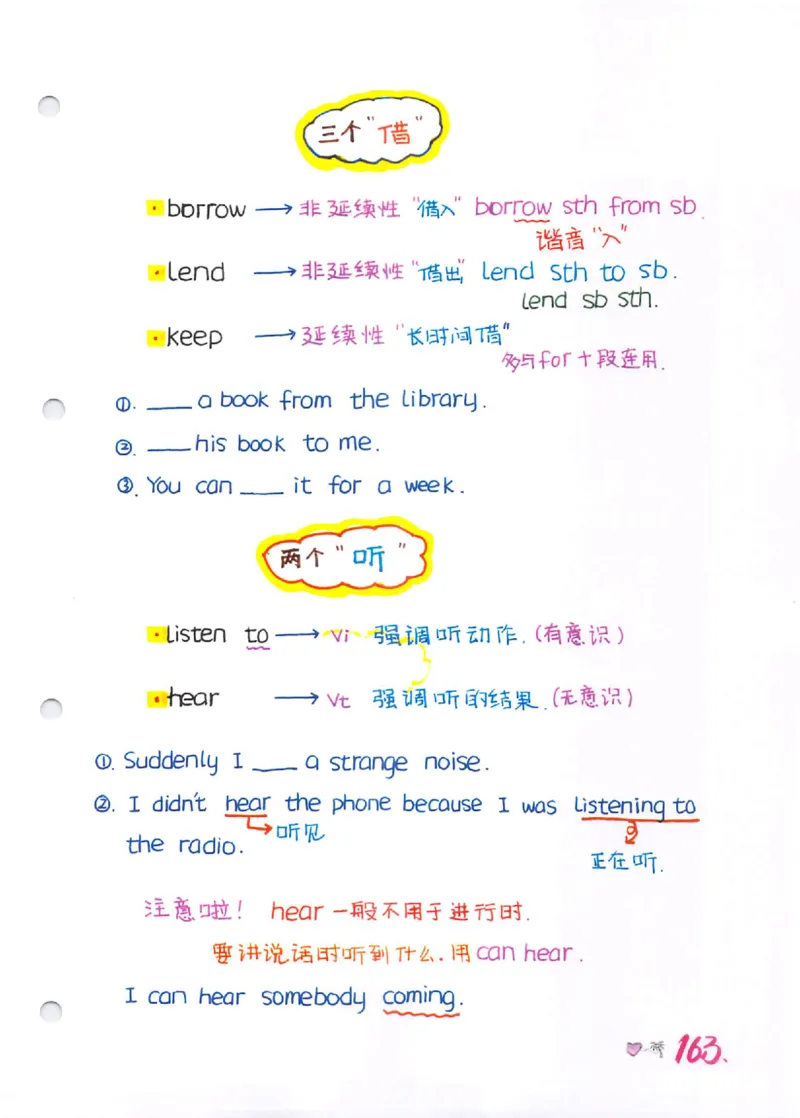 三个“借”
borrow → 非延续性 “借入” borrow sth from sb.
谐音“入”
lend → 非延续性 “借出” lend sth to sb.
lend sb sth.
keep → 延续性 “长时间借”
多与for+段连用.
①. ____ a book from the library.
②. ____ his book to me.
③. You can ____ it for a week.
两个“听”
listen to → vi 强调听动作.(有意识)
hear → vt 强调听的结果.(无意识)
①. Suddenly I ____ a strange noise.
②. I didn't hear the phone because I was listening to
听见
the radio.
正在听.
注意啦! hear 一般不用于进行时.
要讲说话时听到什么.用 can hear.
I can hear somebody coming.
163.